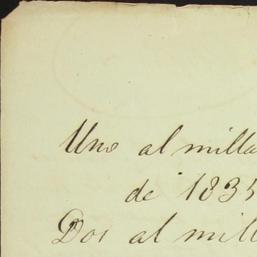 Uno al milla
de 1835
Dos al mill